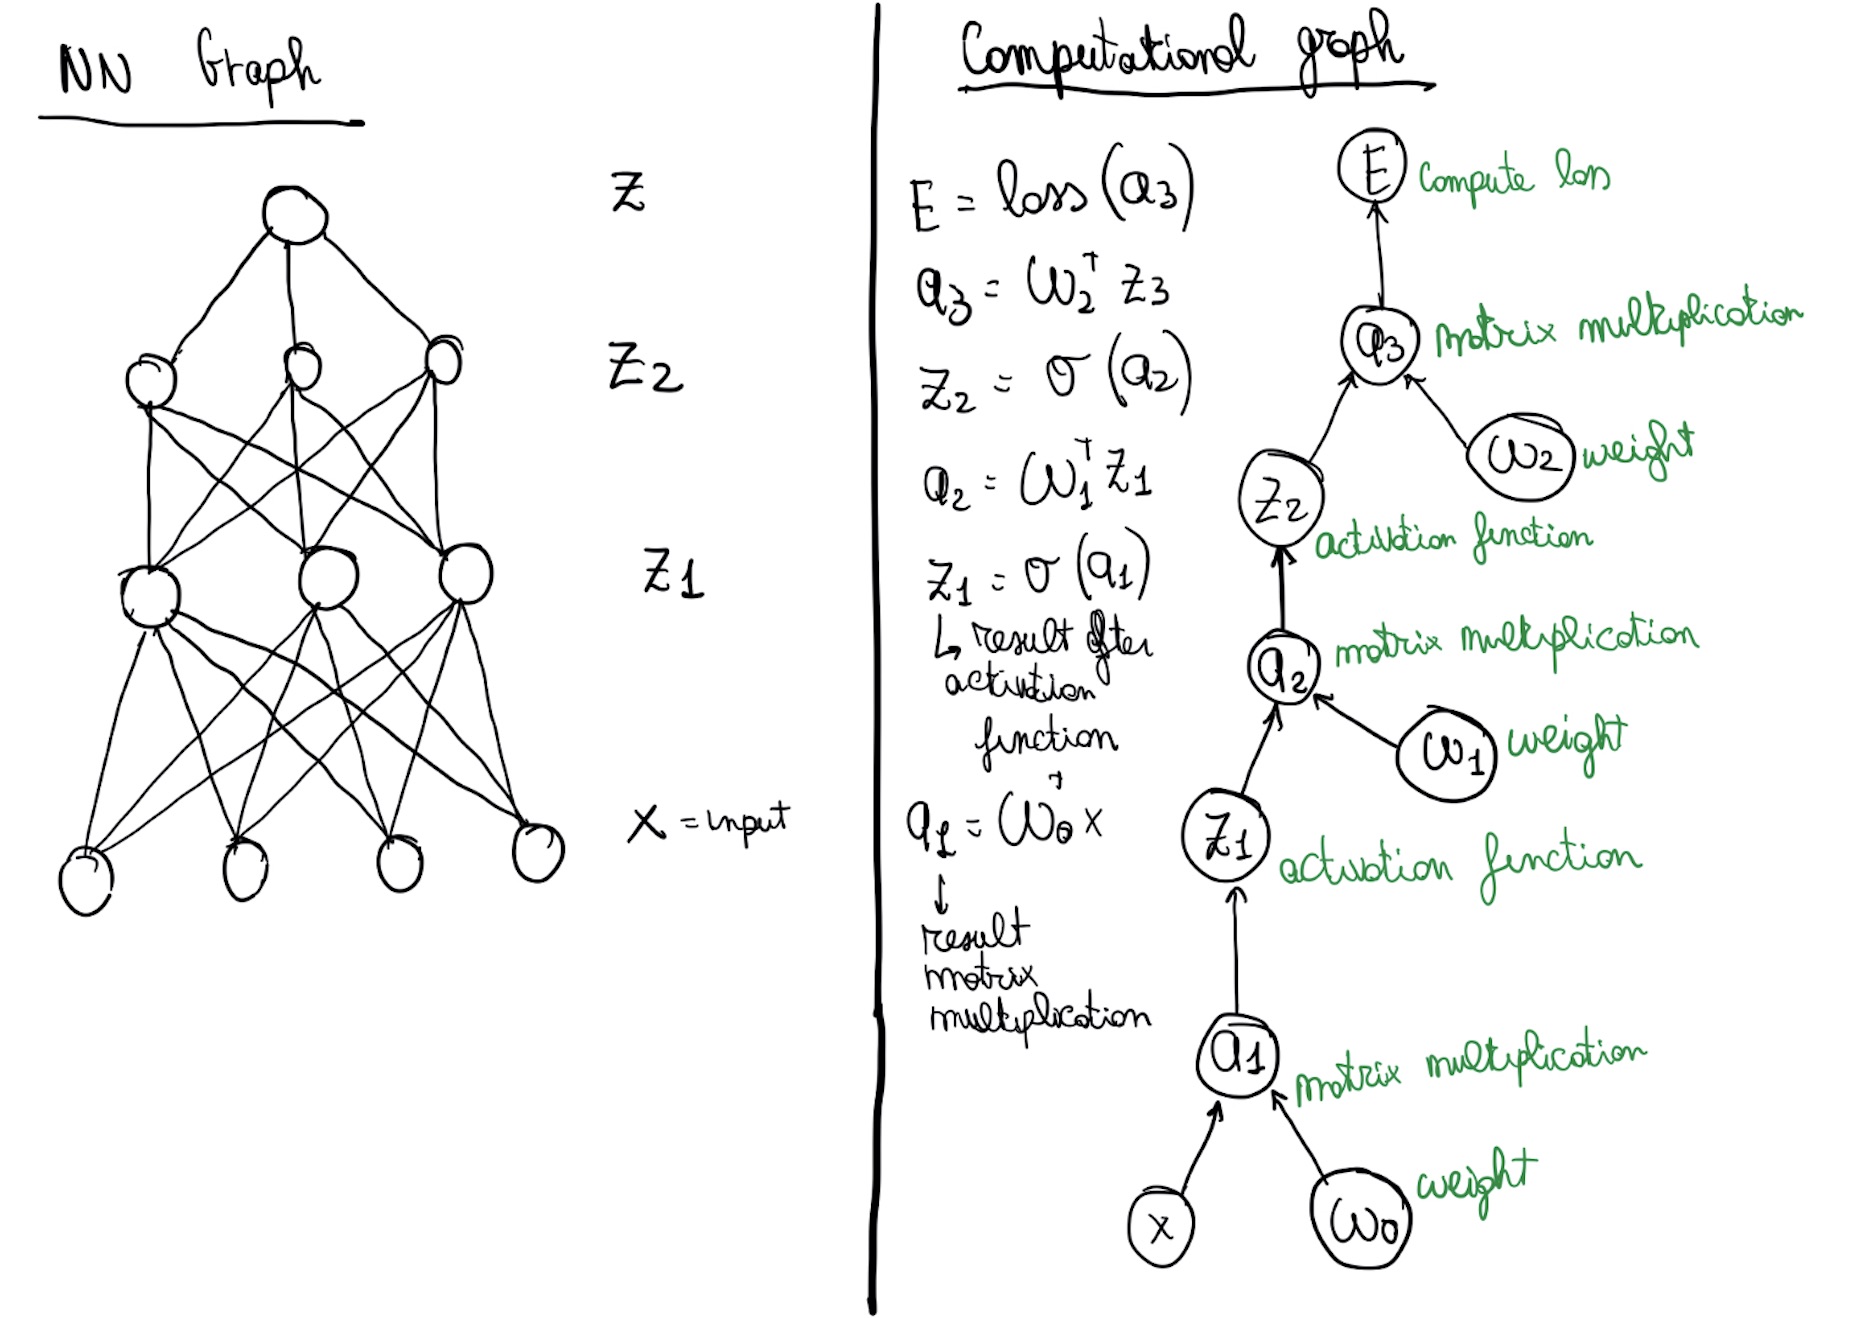 NN Graph
Z
Z2
Z1
X = input
Computational graph
E = loss (a3)
a3 = W2^T Z3
Z2 = σ (a2)
a2 = W1^T Z1
Z1 = σ (a1)
↳ result after
activation
function
a1 = W0^T x
↓
result
matrix
multiplication
E compute loss
a3 matrix multiplication
W2 weight
Z2
activation function
a2 matrix multiplication
W1 weight
Z1 activation function
a1 matrix multiplication
W0 weight
X